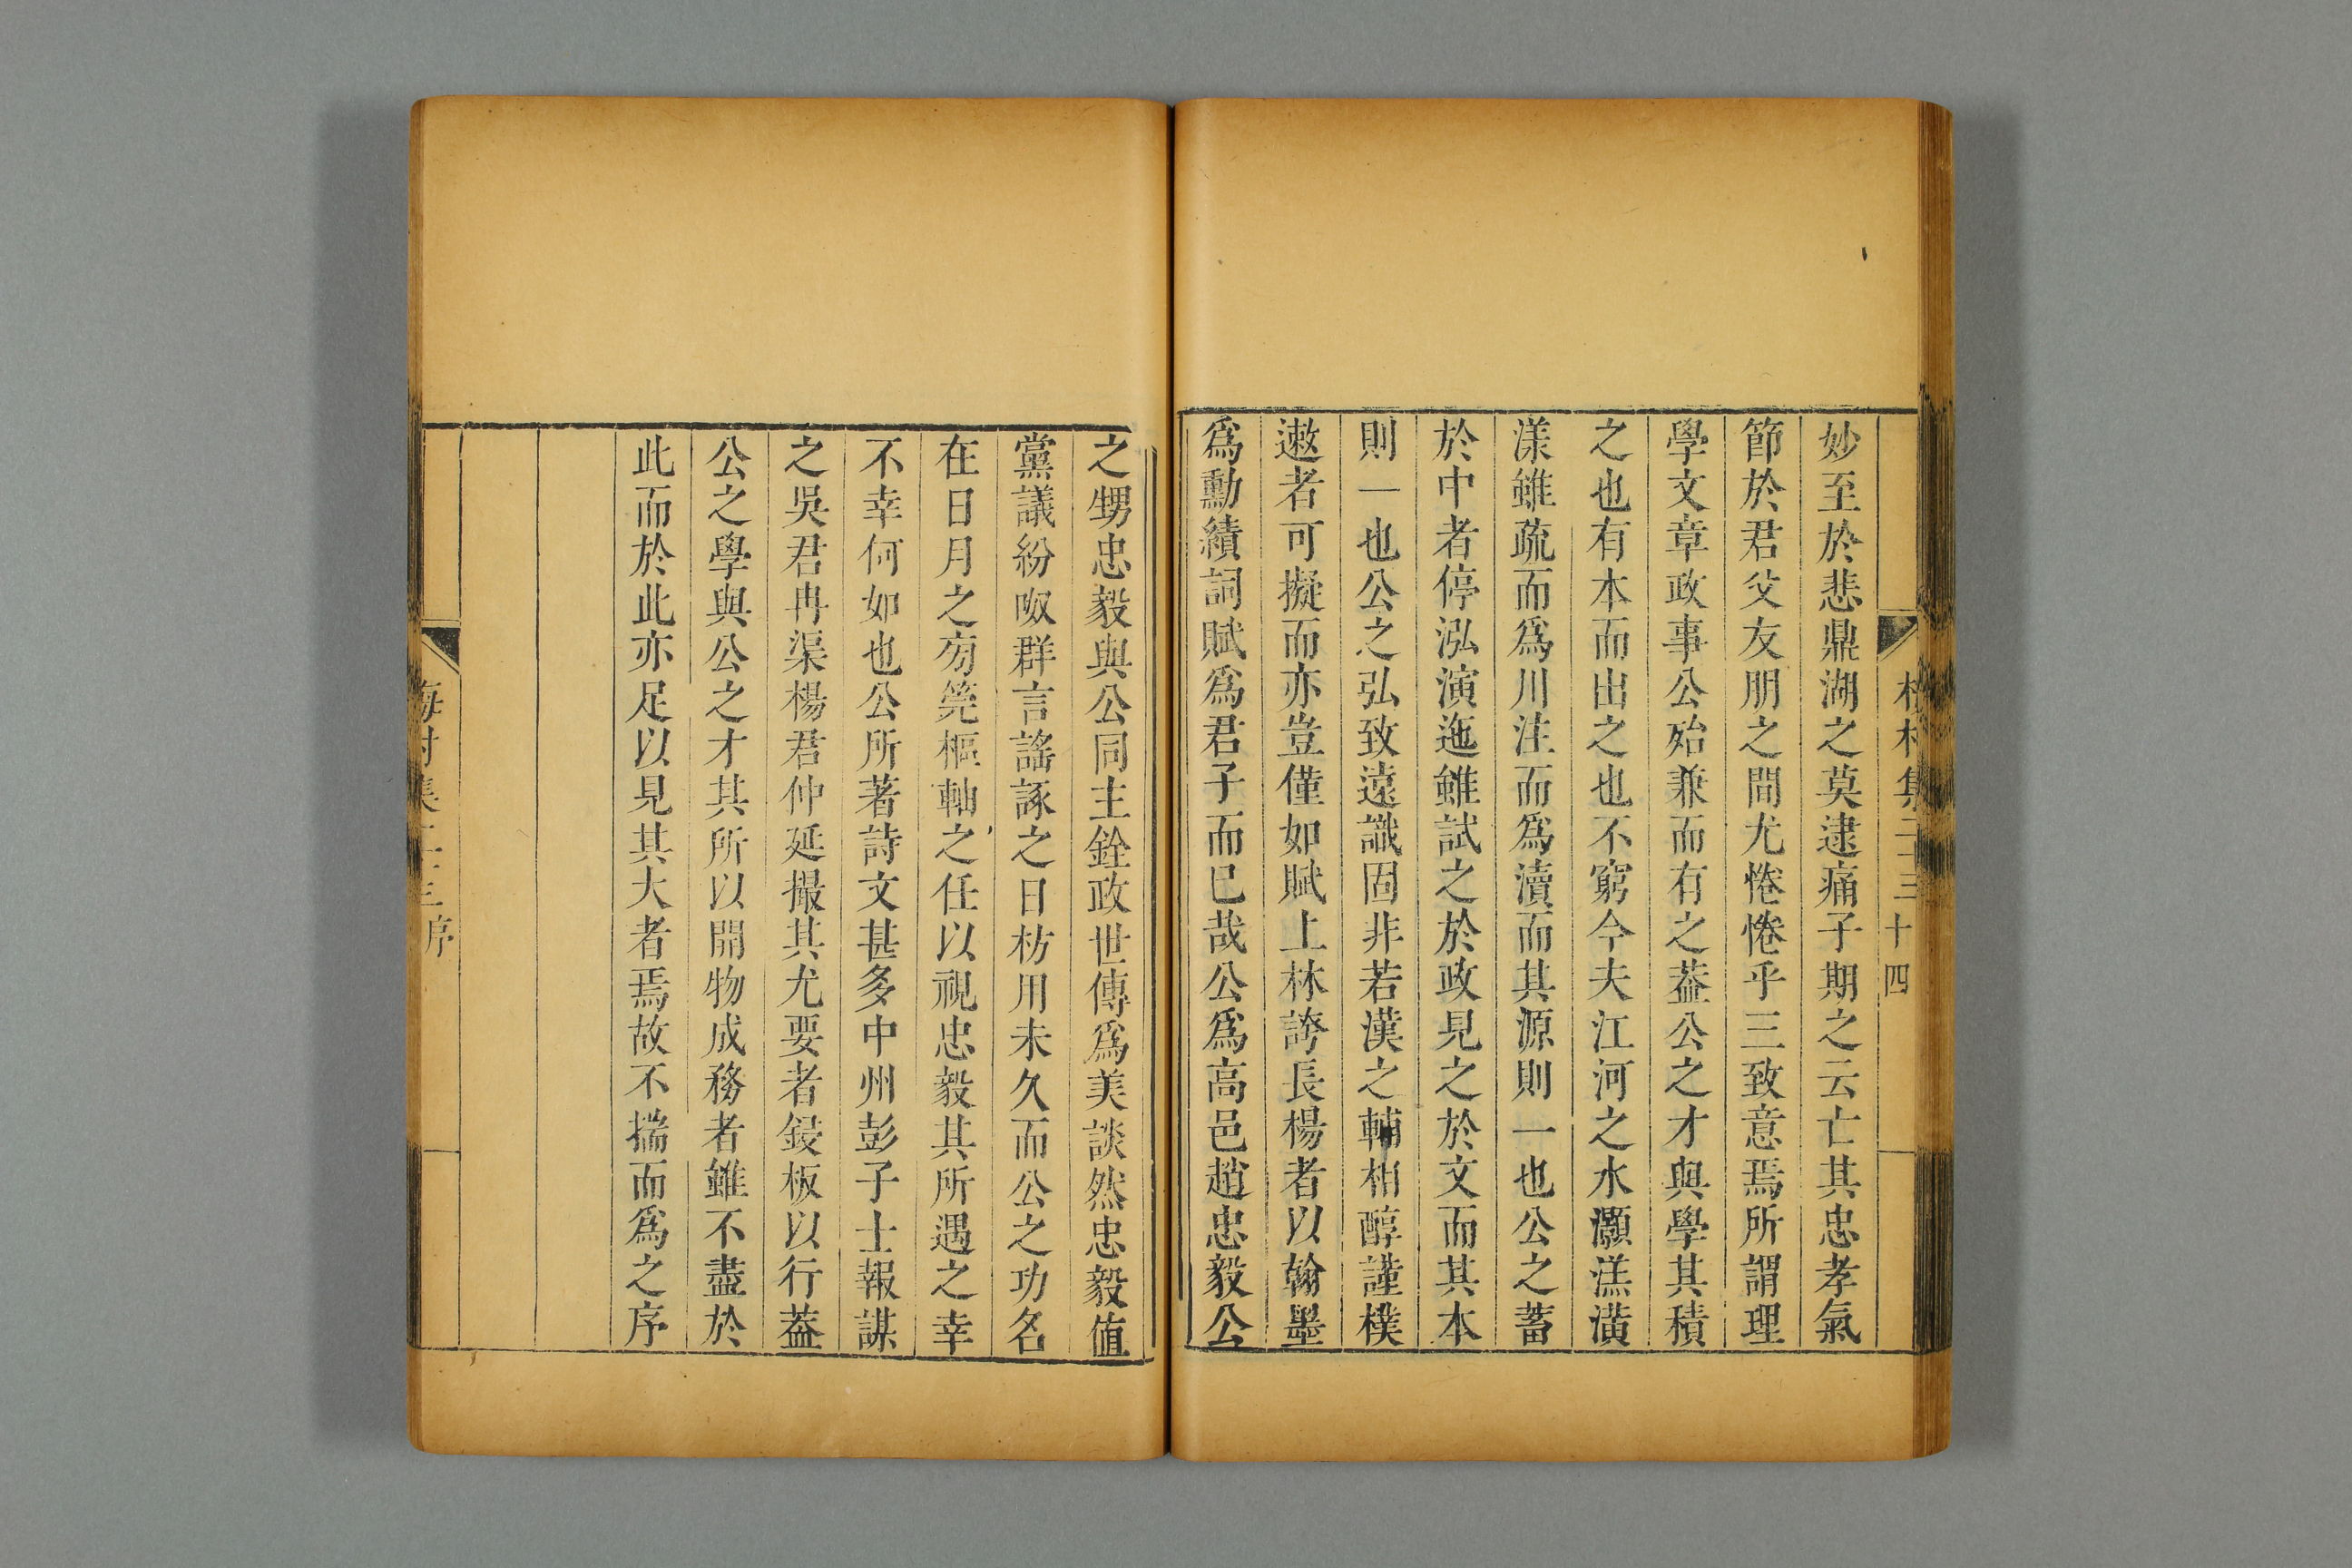 妙至於悲鼎湖之莫逮痛子期之云亡其忠孝氣
節於君父友朋之間尤惓惓乎三致意焉所謂理
學文章政事公殆兼而有之葢公之才與學其積
之也有本而出之也不窮今夫江河之水灝溔潢
漾雖疏而爲川注而爲瀆而其源則一也公之蓄
於中者停泓演迤雖試之於政見之於文而其本
則一也公之弘致遠識固非若漢之輔相醇謹樸
遬者可擬而亦豈僅如賦上林誇長楊者以翰墨
爲勳績詞賦爲君子而已哉公爲高邑趙忠毅公
之甥忠毅與公同主銓政世傳爲美談然忠毅值
黨議紛呶群言謠諑之日枋用未久而公之功名
在日月之旁筦樞軸之任以視忠毅其所遇之幸
不幸何如也公所著詩文甚多中州彭子士報謀
之吳君冉渠楊君仲延撮其尤要者鋟板以行葢
公之學與公之才其所以開物成務者雖不盡於
此而於此亦足以見其大者焉故不揣而爲之序
梅村集二十三 序
十四